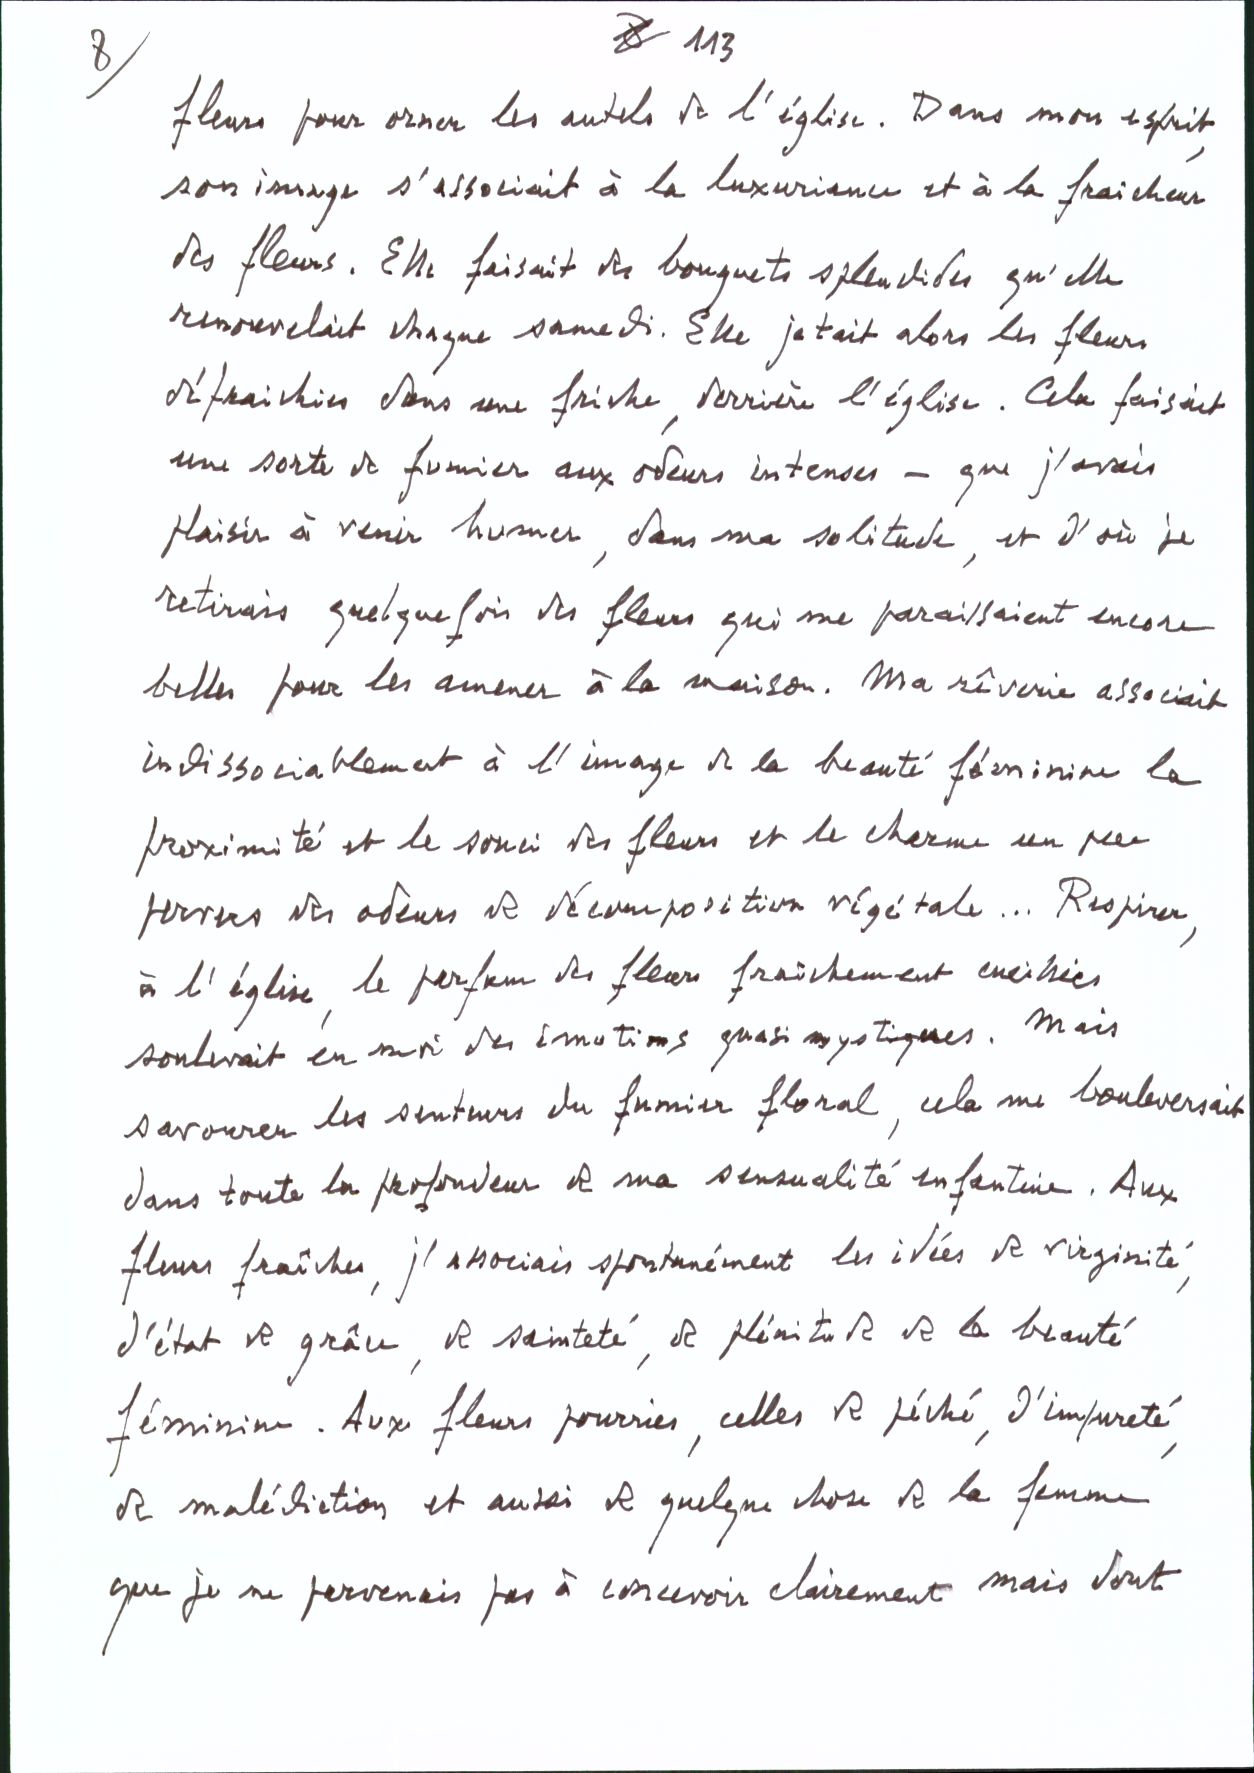 8/
8 113
fleurs pour orner les autels de l'église. Dans mon esprit,
son image s'associait à la luxuriance et à la fraicheur
des fleurs. Elle faisait des bouquets splendides qu'elle
renouvelait chaque samedi. Elle jetait alors les fleurs
défraichies dans une friche, derrière l'église. Cela faisait
une sorte de fumier aux odeurs intenses – que j'avais
plaisir à venir humer, dans ma solitude, et d'où je
retirais quelquefois des fleurs qui me paraissaient encore
belles pour les amener à la maison. Ma rêverie associait
indissociablement à l'image de la beauté féminine la
proximité et le souci des fleurs et le charme un peu
pervers des odeurs de décomposition végétale... Respirer,
à l'église, le parfum des fleurs fraîchement cueillies
soulevait en moi des émotions quasi mystiques. Mais
savourer les senteurs du fumier floral, cela me bouleversait
dans toute la profondeur de ma sensualité enfantine. Aux
fleurs fraîches, j'associais spontanément les idées de virginité,
d'état de grâce, de sainteté, de plénitude de la beauté
féminine. Aux fleurs pourries, celles de péché, d'impureté,
de malédiction et aussi de quelque chose de la femme
que je ne parvenais pas à concevoir clairement mais dont